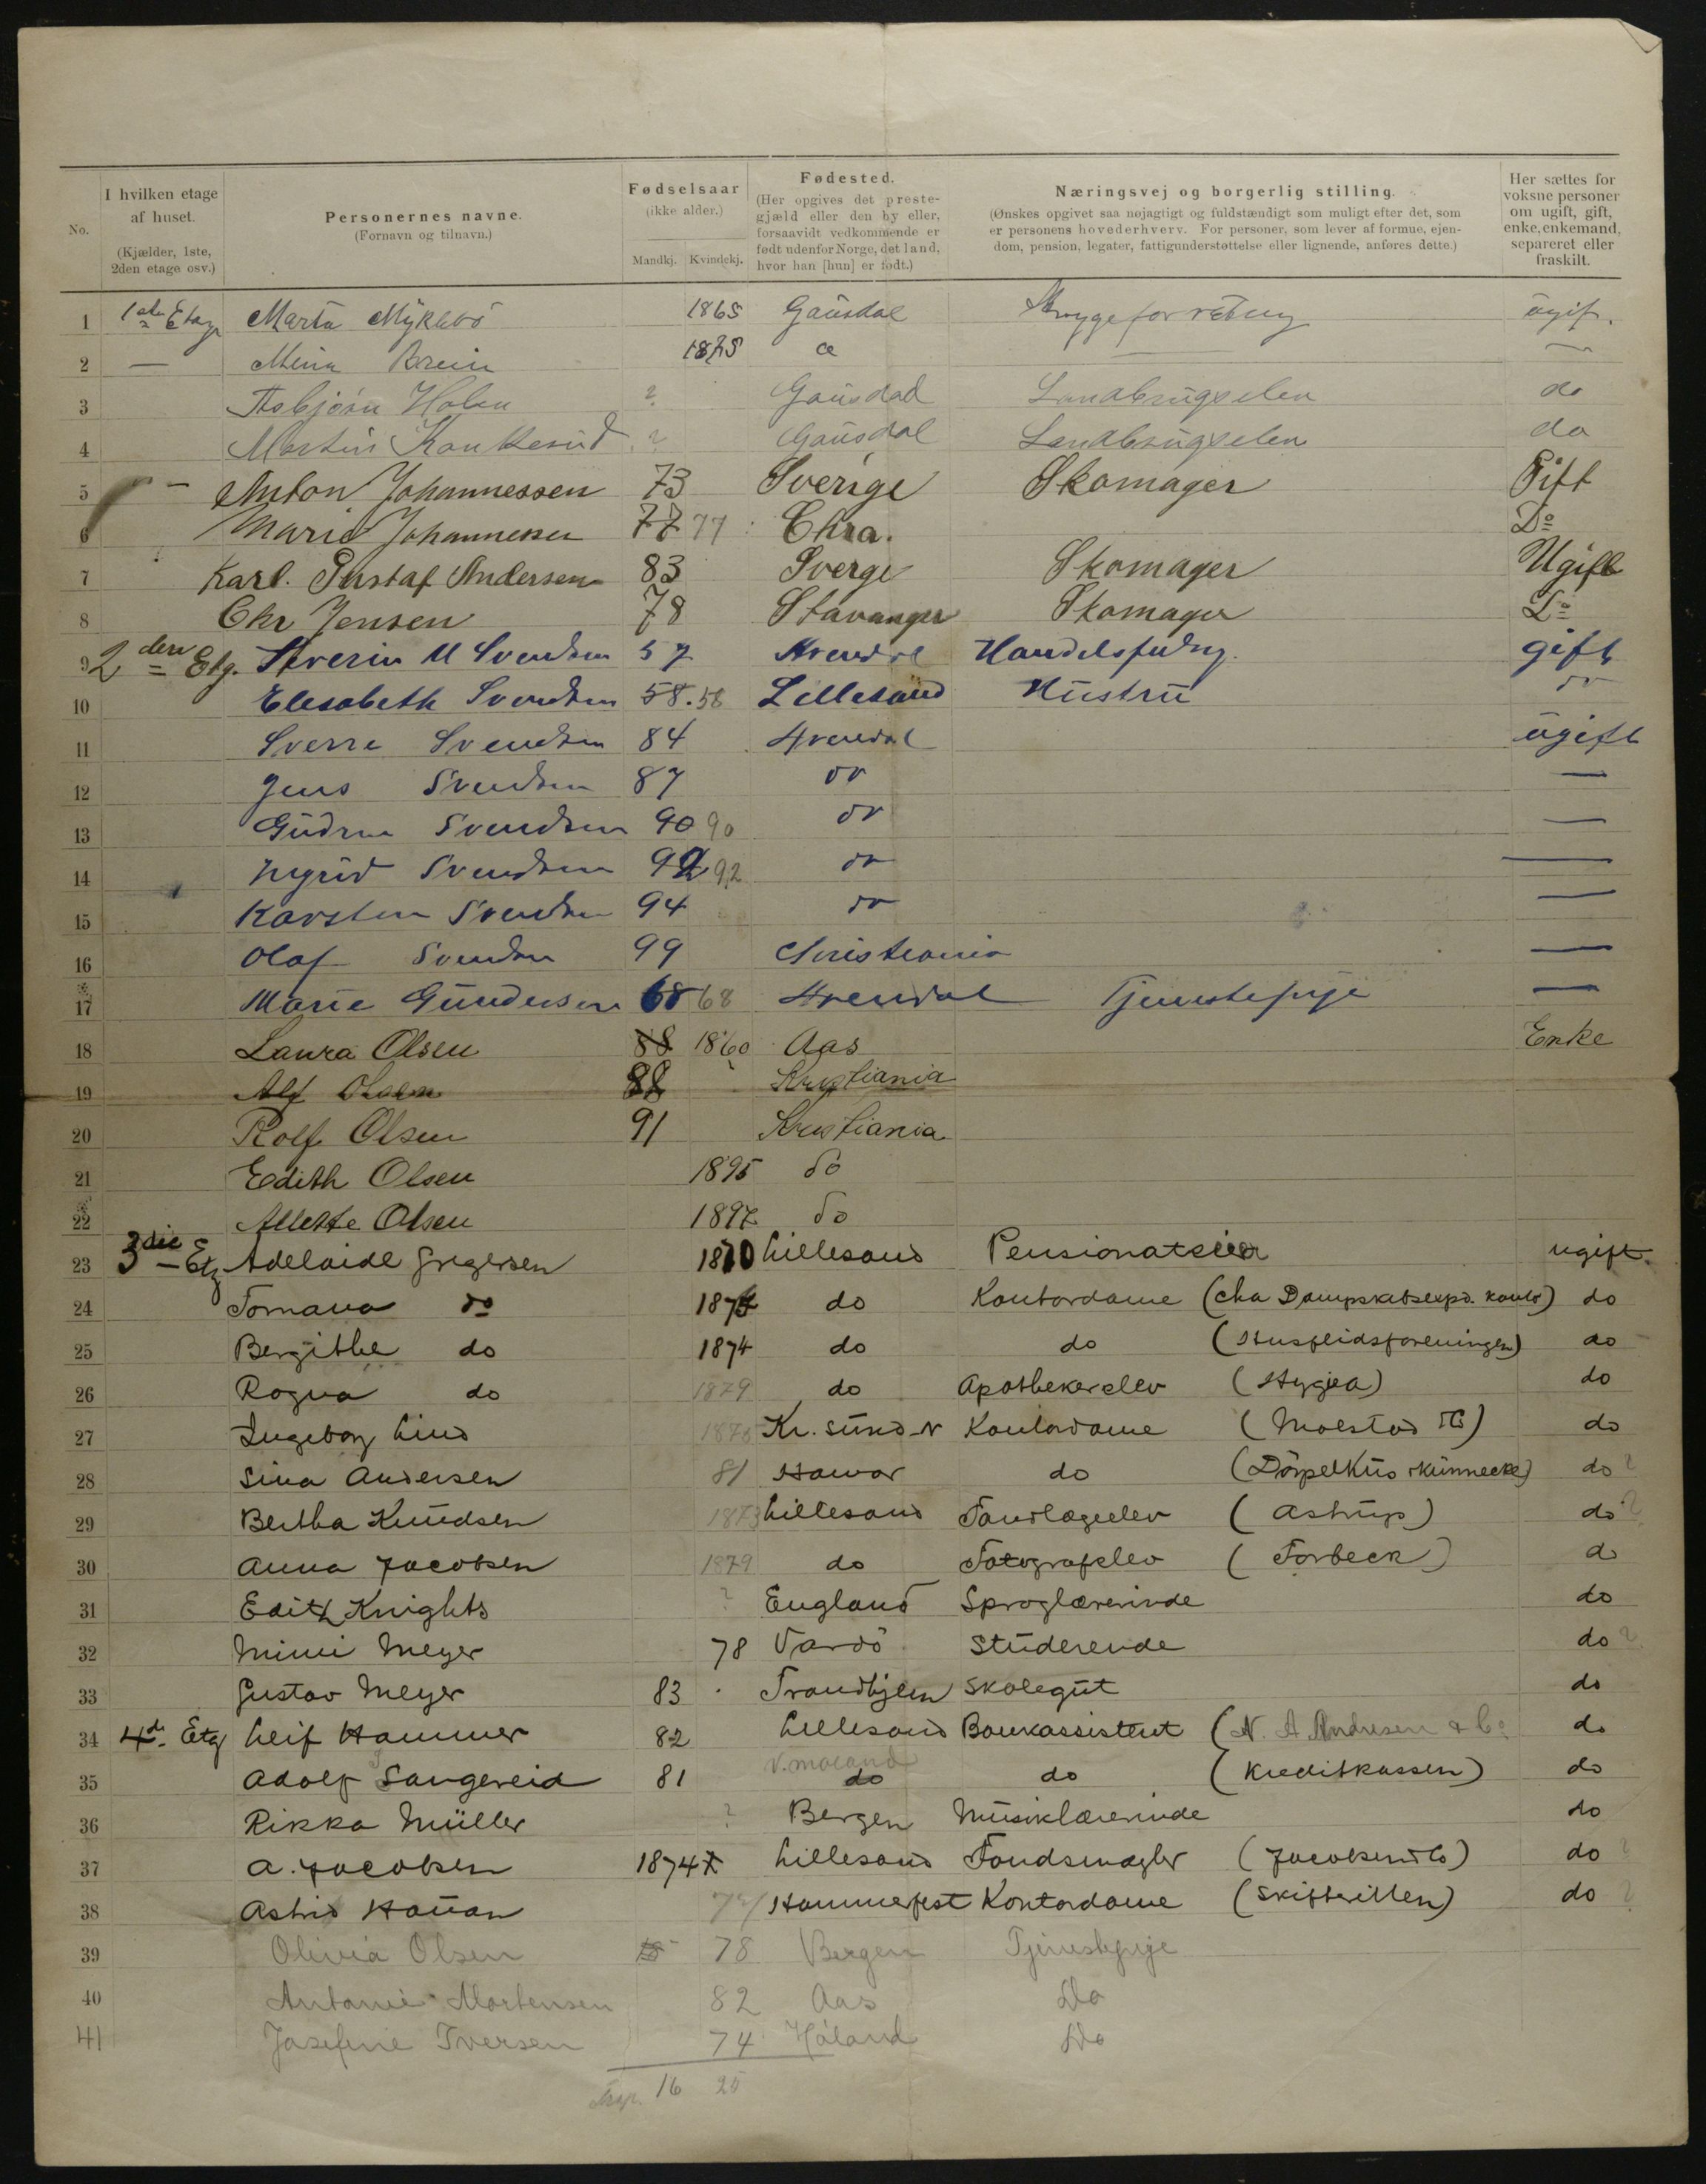 No.
I hvilken etage af huset.
(Kjælder, 1ste, 2den etage osv.)
Personernes navne.
(Fornavn og tilnavn.)
Fødselsaar
(ikke alder.)
Mandkj. Kvindekj.
Fødested.
(Her opgives det prestegjæld eller den by eller, forsaavidt vedkommende er født udenfor Norge, det land, hvor han [hun] er født.)
Næringsvej og borgerlig stilling.
(Ønskes opgivet saa nøjagtigt og fuldstændigt som muligt efter det, som er personens hovederhverv. For personer, som lever af formue, ejendom, pension, legater, fattigunderstøttelse eller lignende, anføres dette.)
Her sættes for voksne personer om ugift, gift, enke, enkemand, separeret eller fraskilt.
1 1ste Etage Marta Myklebö 1865 Gausdal Strygeforretning ugift.
2 — Mina 1875
3 Asbjörn Holen ? Gausdal Landbrugselev do
4 Martin ? Gausdal Landbrugselev do
5 — Anton Johannessen 73 Sverige Skomager Gift
6 Marie Johannesen 77 77 Chra. Do
7 Karl. Gustaf Andersen 83 Sverge Skomager Ugift
8 Chr Jensen 78 Stavanger Skomager Do
9 2den Etg. Severin M Svendsen 57 Arendal gift
10 Elesabeth Svendsen 58. 58 Lillesand Hustru do
11 Sverre Svendsen 84 Arendal ugift
12 Jens Svendsen 87 do —
13 Gudrun Svendsen 90 90 do —
14 Ingrid Svendsen 92 92 do —
15 Karsten Svendsen 94 do —
16 Olaf Svendsen 99 Christiania —
17 Marie Gundersen 68 68 Arendal Tjenestepige —
18 Laura Olsen 1860 Aas Enke
19 Alf Olsen 88 Kristiania
20 Rolf Olsen 91 Kristiania
21 Edith Olsen 1895 do
22 Allette Olsen 1897 do
23 3die Etg Adelaide Gregersen 1870 Lillesand Pensionatseier ugift.
24 Tomana do 187 do Kontordame (Cha Dampskibsexpd. kontor) do
25 Bergithe do 1874 do do (Husflidsforeningen) do
26 Ragna do 1879 do Apothekerelev (Hygiea) do
27 Ingeborg Lind 1875 Kr. sund N Kontordame (Molstad & Co) do
28 Sina Andersen 81 Hamar do do ?
29 Bertha Knudsen 1873 Lillesand Tandlægeelev (Astrup) do ?
30 Anna Jacobsen 1879 do Fotografelev (Forbech) do
31 Edith Knights ? England Sproglærerinde do
32 Mimi Meyer 78 Vardö Studerende do ?
33 Gustav Meyer 83 Trondhjem Skolegut do
34 4de Etg Leif Hammer 82 Lillesand Bankassistent (N. A. Andresen & Co do
35 Adolf Sangereid 81 V. Moland do do (Kreditkassen) do
36 Rikka Müller ? Bergen Musiklærerinde do
37 A. Jacobsen 1874 Lillesand Fondsmægler (Jacobsen & Co) do ?
38 Astrid Hauan Hammerfest Kontordame (Skifteretten) do ?
39 Olivia Olsen 78 Bergen Tjenestepige
40 Antonie Mortensen 82 Aas Do
41 Josefine Iversen 74 Höland Do
16 25